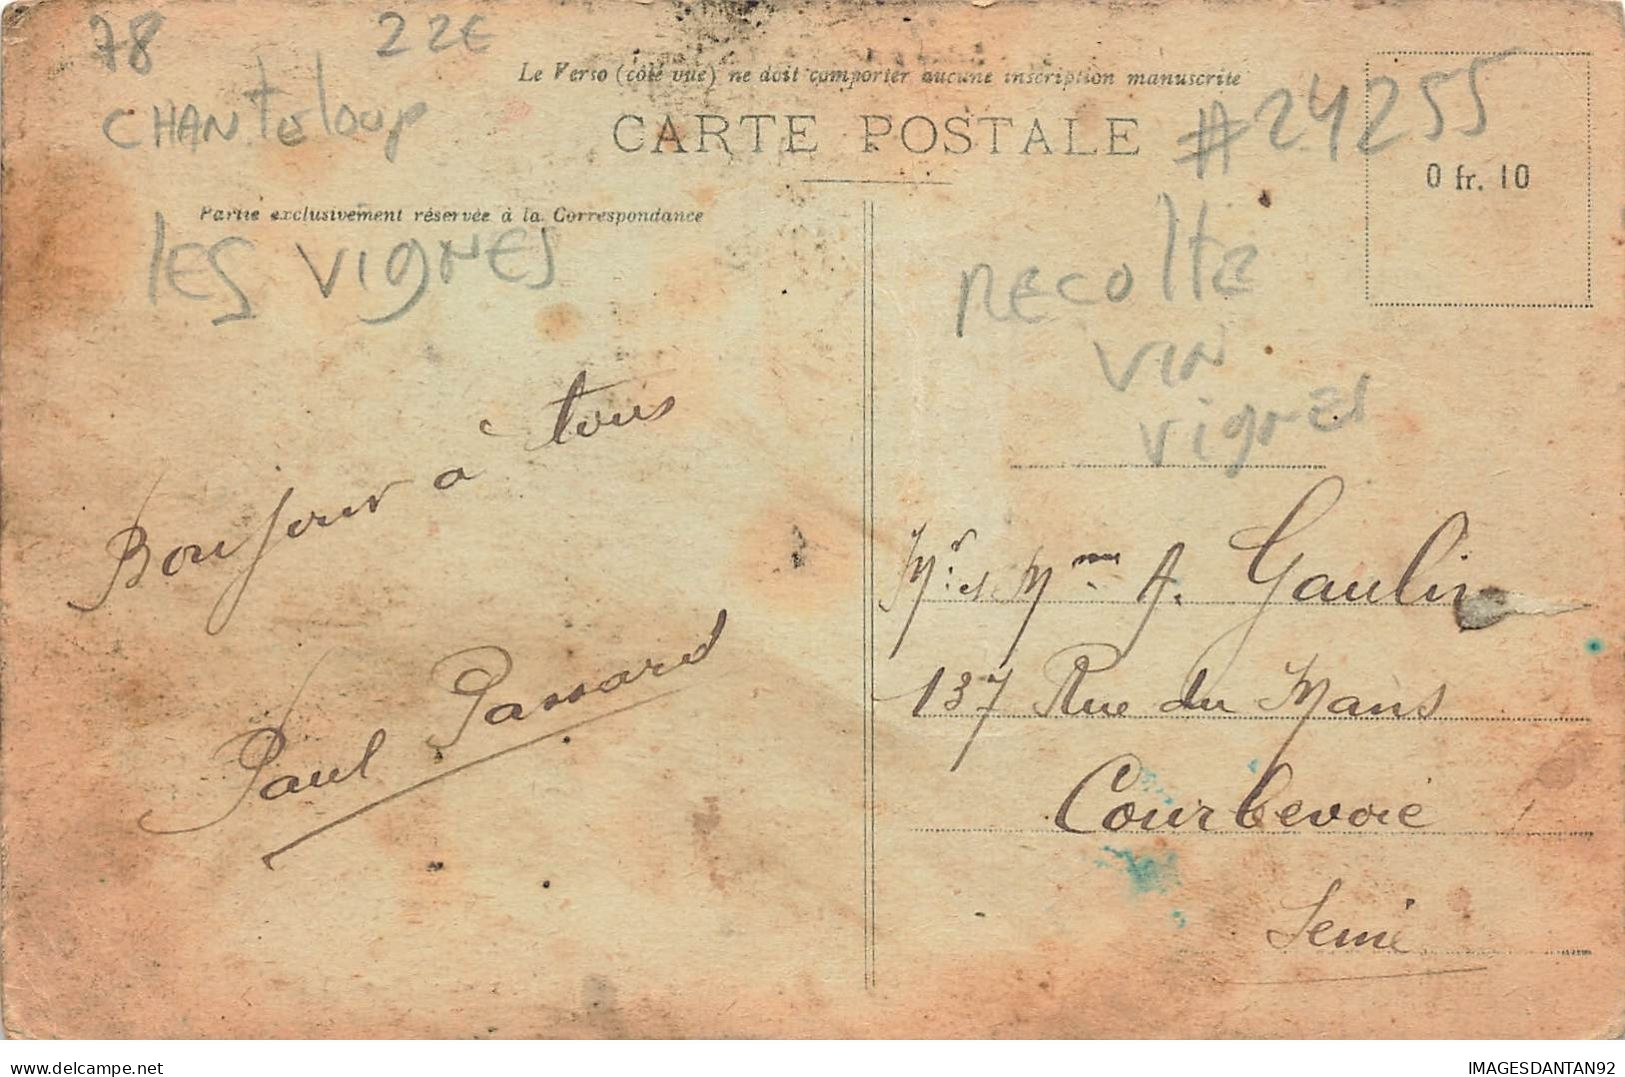 78
22€
CHANTELOUP
Le Verso (côté vue) ne doit comporter aucune inscription manuscrite
CARTE POSTALE
#24255
0 fr. 10
Partie exclusivement réservée à la Correspondance
les VIGNES
RECOLTE
VIN
VIGNES
Bonjour à tous
Paul Passard
Mr. et Mme A. Gaulin
137 Rue du Mans
Courbevoie
Seine
IMAGESDANTAN92